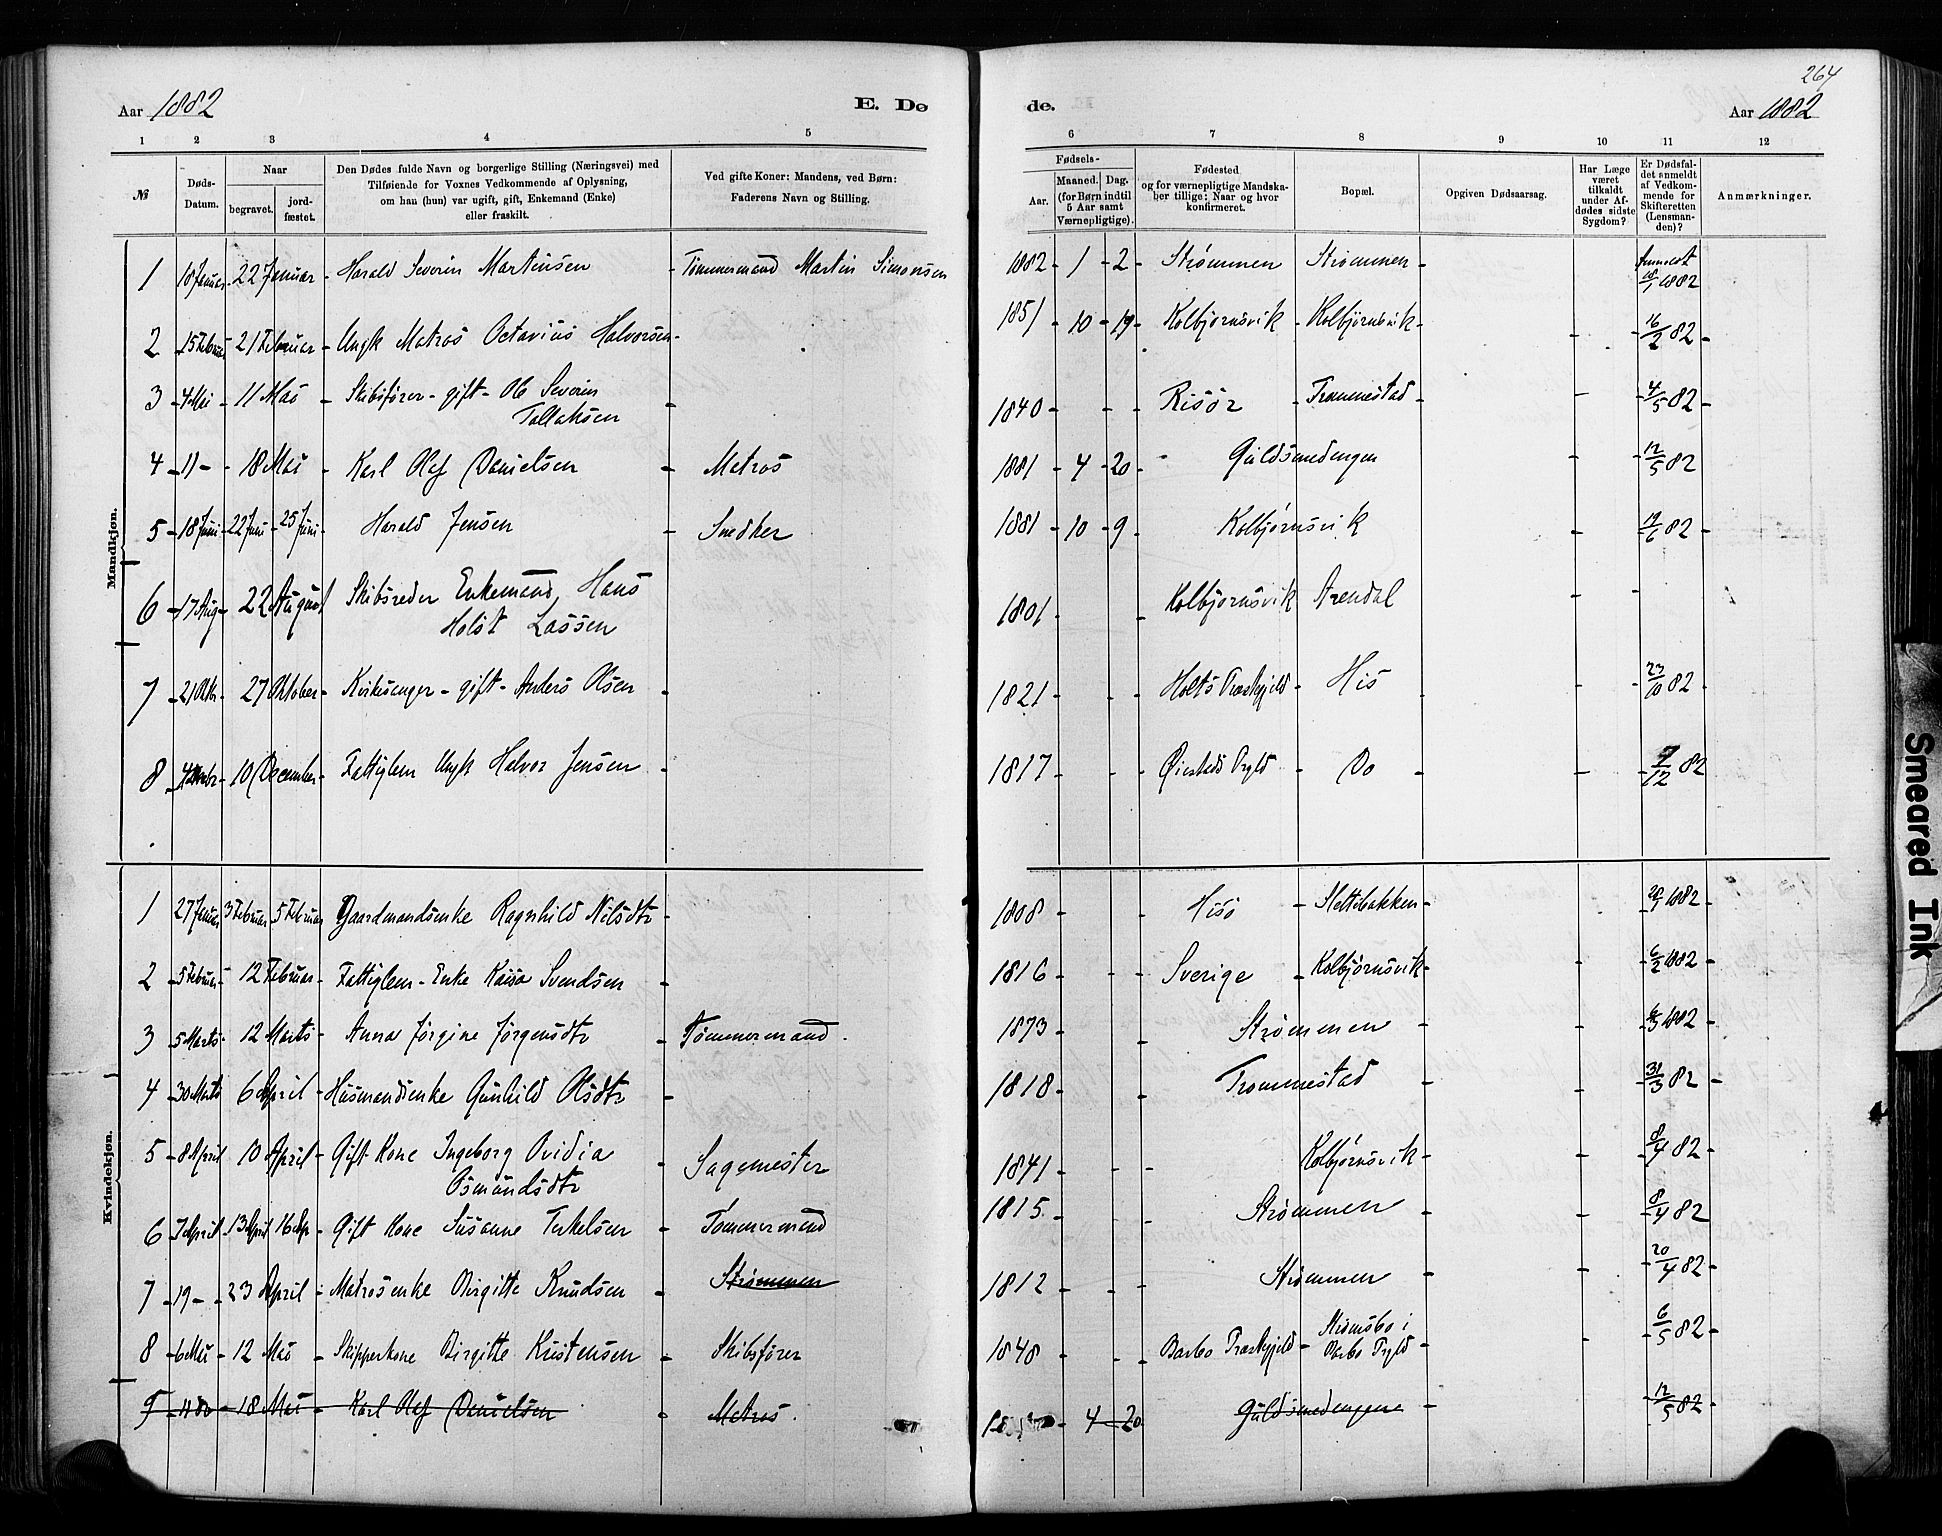 264
Aar 1882 E. Dø
de. Aar 1882
1 2 3 4 5
6 7 8 9 10 11 12
№ Døds-Datum. Naar begravet. jord-fæstet. Den Dødes fulde Navn og borgerlige Stilling (Næringsvei) med Tilføiende for Voxnes Vedkommende af Oplysning, om han (hun) var ugift, gift, Enkemand (Enke) eller fraskilt. Ved gifte Koner: Mandens, ved Børn: Faderens Navn og Stilling.
Fødsels- Aar. Maaned. Dag. (for Børn indtil 5 Aar samt Værnepligtige). Fødested og for værnepligtige Mandska-ber tillige: Naar og hvor konfirmeret. Bopæl. Opgiven Dødsaarsag. Har Læge været tilkaldt under Af-dødes sidste Sygdom? Er Dødsfal-det anmeldt af Vedkom-mende for Skifteretten (Lensman-den)? Anmærkninger.
Mandkjøn.
1 18 Januar 22 Januar - Harald Severin Martinsen - Tømmermand Martin Simonsen 1882 - 1 - 2 - Strømmen Strømmen - Anmeldt 18/1 1882
2 15 Februar 21 Februar - Ungk Matros Octavius Halvorsen - 1851 - 10 - 19 - Kolbjornsvik - Kolbjørnsvik - 16/2 82 -
3 - 4 Mai - 11 Mai - Skibsfører - gift - Ole Severin
Tallaksen - 1840 - Risør - Trommestad - 4/5 82 -
4 - 11 - - 18 Mai - Karl Olaf Danielsen - Matros 1881 - 4 - 20 - Guldsmedengen - 12/5 82
5 - 18 Juni - 22 Juni - 25 Juni - Harald Jensen - Snedker 1881 - 10 - 9 - Kolbjørnsvik - 19/6 82 -
6 - 17 Aug - 22 August Skibsreder Enkemand, Hans
Holst Lassen 1801 - Kolbjornsvik Arendal
7 - 21 Oktr - 27 Oktober - Kirkesanger - gift - Anders Olsen - 1821 - Holts Præstgjeld - His - 23/10 82
8 - 10 December - Fattiglem Ungk Halvor Jensen - 1817 - Øiestads Prgld - Do - 7/12 82
Kvindekjøn.
1 27 Januar 3 Februar 5 Februar Gaardmandsenke Ragnhild Nilsdtr 1808 - Hisø - Slettebakken - 28/1 1882
2 - 5 Februar - 12 Februar - Fattiglem - Enke Kaisa Svendsen - 1816 - Sverige - Kolbjørnsvik - 6/2 1882
3 5 Marts - 12 Marts - Anna Jørgine Jørgensdtr - Tømmermand. 1873 - Strømmen - 6/3 1882
4 - 30 Marts 6 April - Husmandsenke Gunhild Olsdtr - 1818 - Trommestad - 31/3 82 -
5 - 8 April 10 April - Gift Kone Ingeborg Ovidia
Osmundsdtr - Sagemester 1841 - Kolbjørnsvik - 8/4 82 -
6 7 April - 13 April 16 Ap - Gift Kone Susanne Terkelsen - Tømmermand 1815 - Strømmen - 8/4 82 -
7 - 19 - - 23 April - Matrosenke Birgitte Knudsen - Strømmen 1812 - Strømmen - 20/4 82 -
8 - 6 Mai - 12 Mai - Skipperkone Birgitte Kristensen - Skibsfører 1848 - Barbo Præstgjeld - Strømsbo i
Barbo Prgld - 6/5 82 -
11 do - 18 Mai - Karl Olaf Danielsen Matros. 4 - 20 Guldsmedengene - 12/5 82 -
Smeared Ink